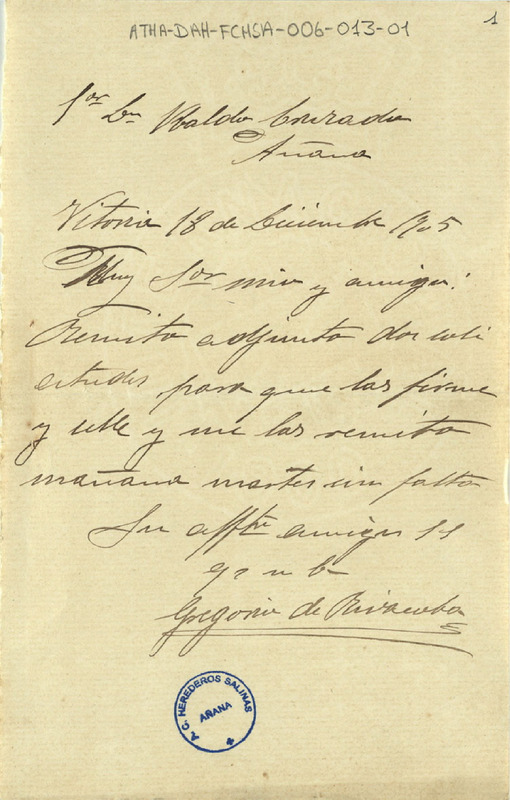 ATHA-DAH-FCHSA-006-013-01
1
Sor Dn Ubaldo Conrado
Añana
Vitoria 18 de Diciembre 1905
Muy Sor mio y amigo:
Remito adjunto dos soli
citudes para que las firme
y selle y me las remita
mañana martes sin falta
Su affmo amigo SS
q s m b
Gregorio de Rivacoba
P. C. HEREDEROS SALINAS
AÑANA